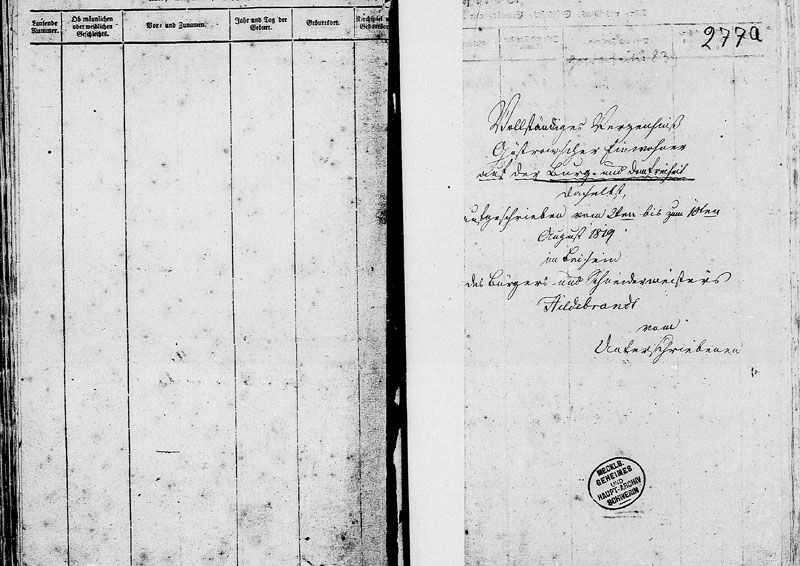 Laufende Nummer.
Ob männlichen oder weiblichen Geschlechts.
Vor- und Zunamen.
Jahr und Tag der Geburt.
Geburtsort.
Kirchspiel
277a
Vollständiges Verzeichniß
Güstrowscher Einwohner
auf der Burg- und Domfreiheit
daselbst,
aufgeschrieben vom 2ten bis zum 10ten
August 1819
im Beisein
des Bürgers und Schneidermeisters
Hildebrandt
vom
Unterschriebenen
MECKLB.
GEHEIMES
UND
HAUPT-ARCHIV
SCHWERIN